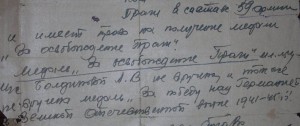 Праги в составе 39 армии
и имеет право на получение медали
"За освобождение Праги"
Медаль "За освобождение Праги" 
не вручена и также
не вручена медаль "За победу над Германией
Великой Отечественной войне 1941-45 гг."